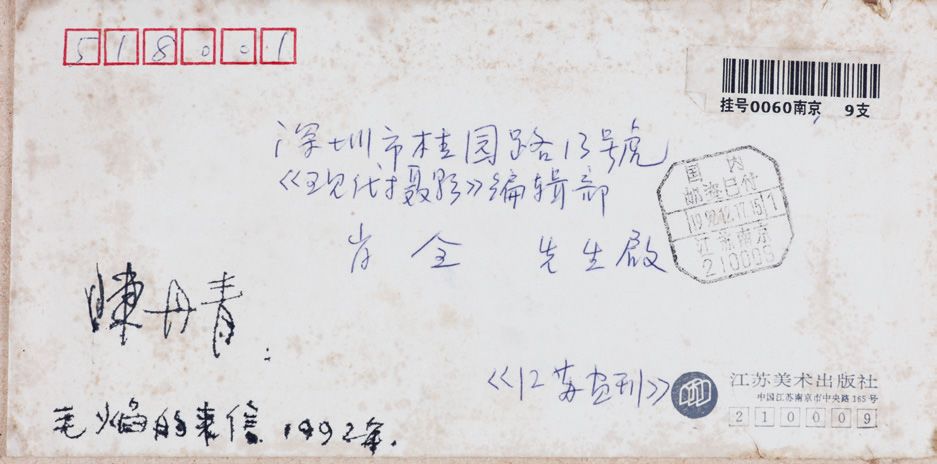 518001
挂号0060南京 9支
深圳市桂园路13号
《现代摄影》编辑部
肖全 先生啟
国内
邮资已付
1992.12.17.15 1
江苏南京
210009
陳丹青
毛焰的来信 1992年.
《江苏画刊》
江苏美术出版社
中国江苏南京市中央路165号
210009